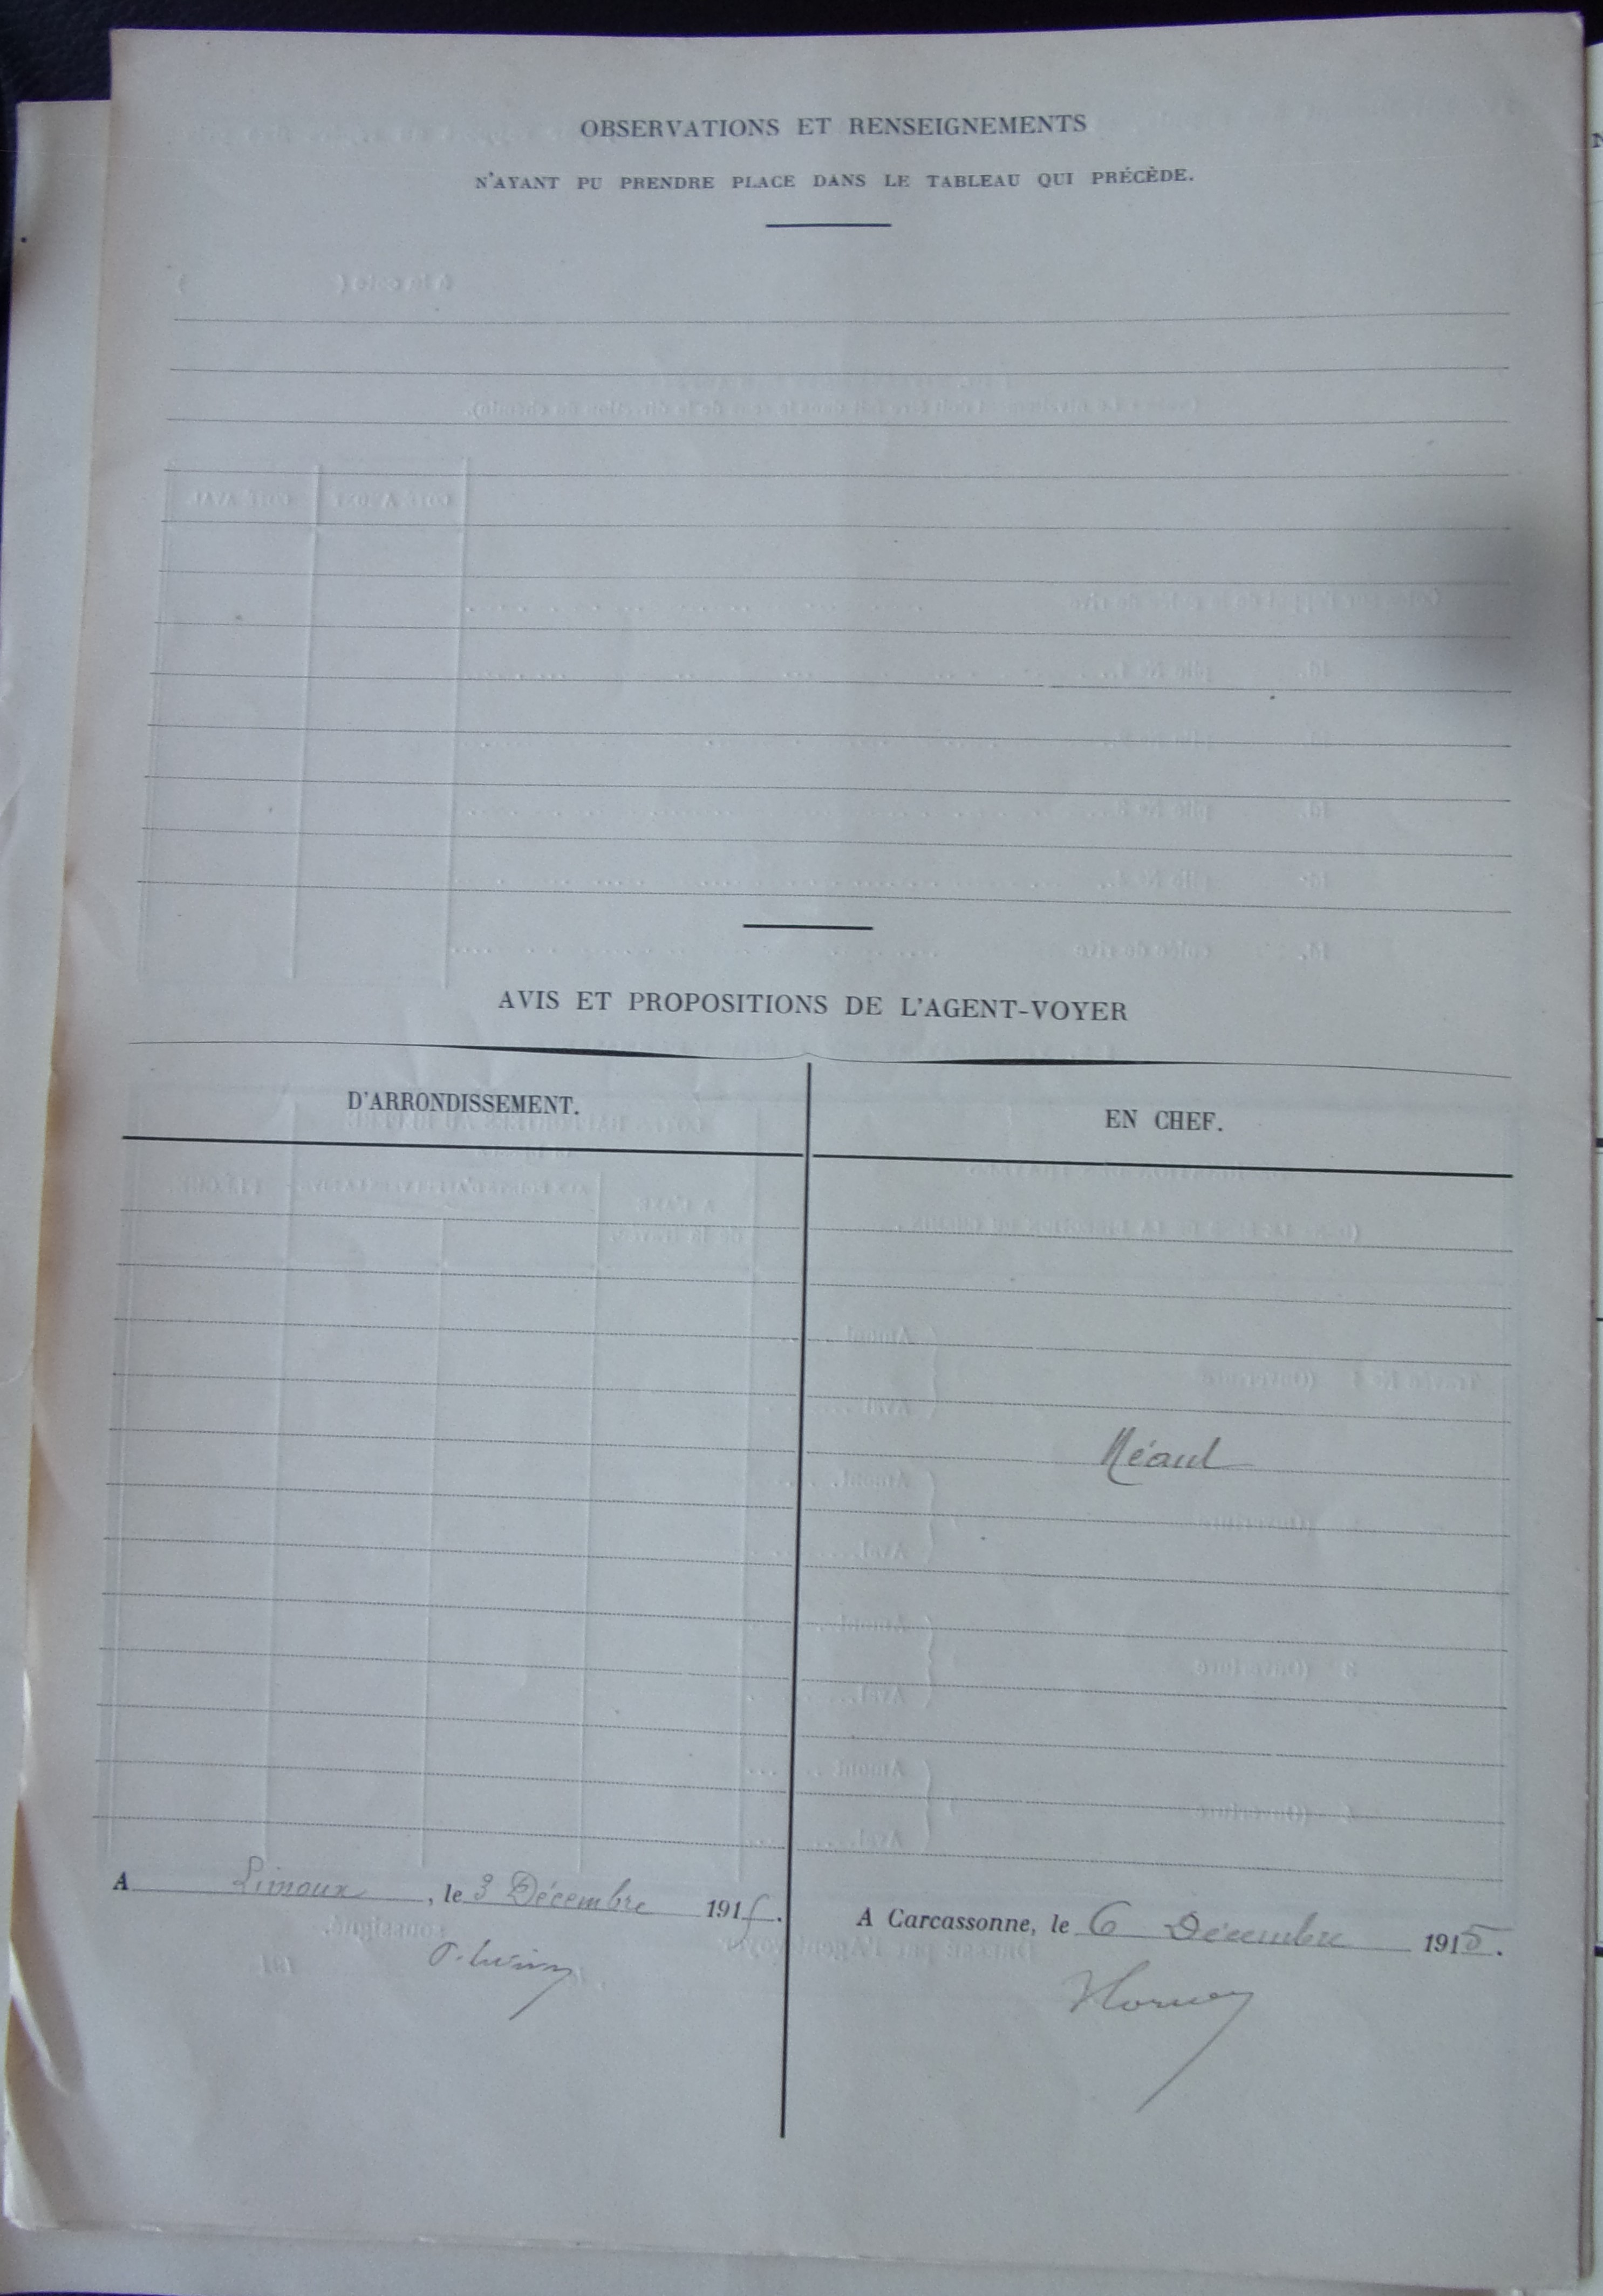 OBSERVATIONS ET RENSEIGNEMENTS
N'AYANT PU PRENDRE PLACE DANS LE TABLEAU QUI PRÉCÈDE.
AVIS ET PROPOSITIONS DE L'AGENT-VOYER
D'ARRONDISSEMENT.
EN CHEF.
Néant
A Limoux, le 3 Décembre 1915.
A Carcassonne, le 6 Décembre 1915.